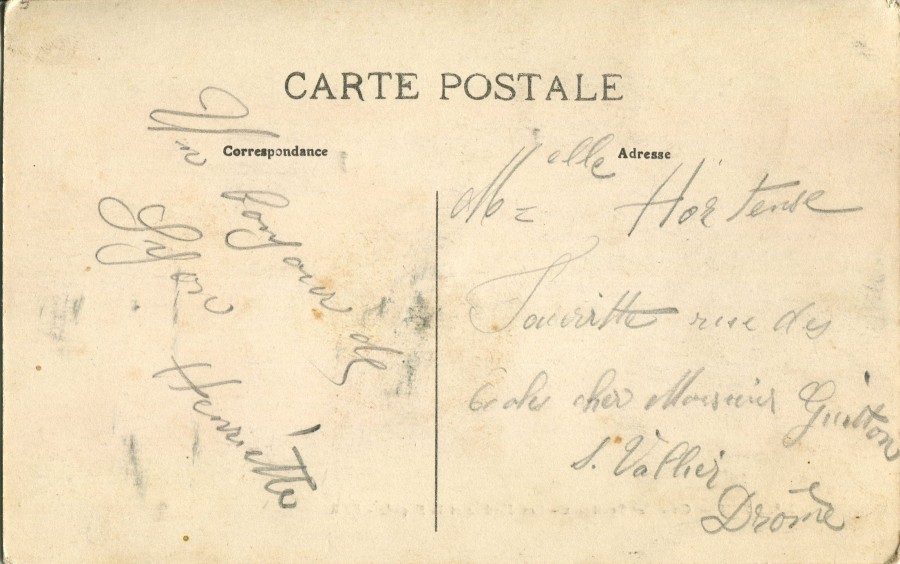 CARTE POSTALE
Correspondance
Un bonjour de
Lyon
Henriette
Adresse
Melle Hortense
rue des
Ecoles cher Monsieur Guitton
S. Vallier
Drôme